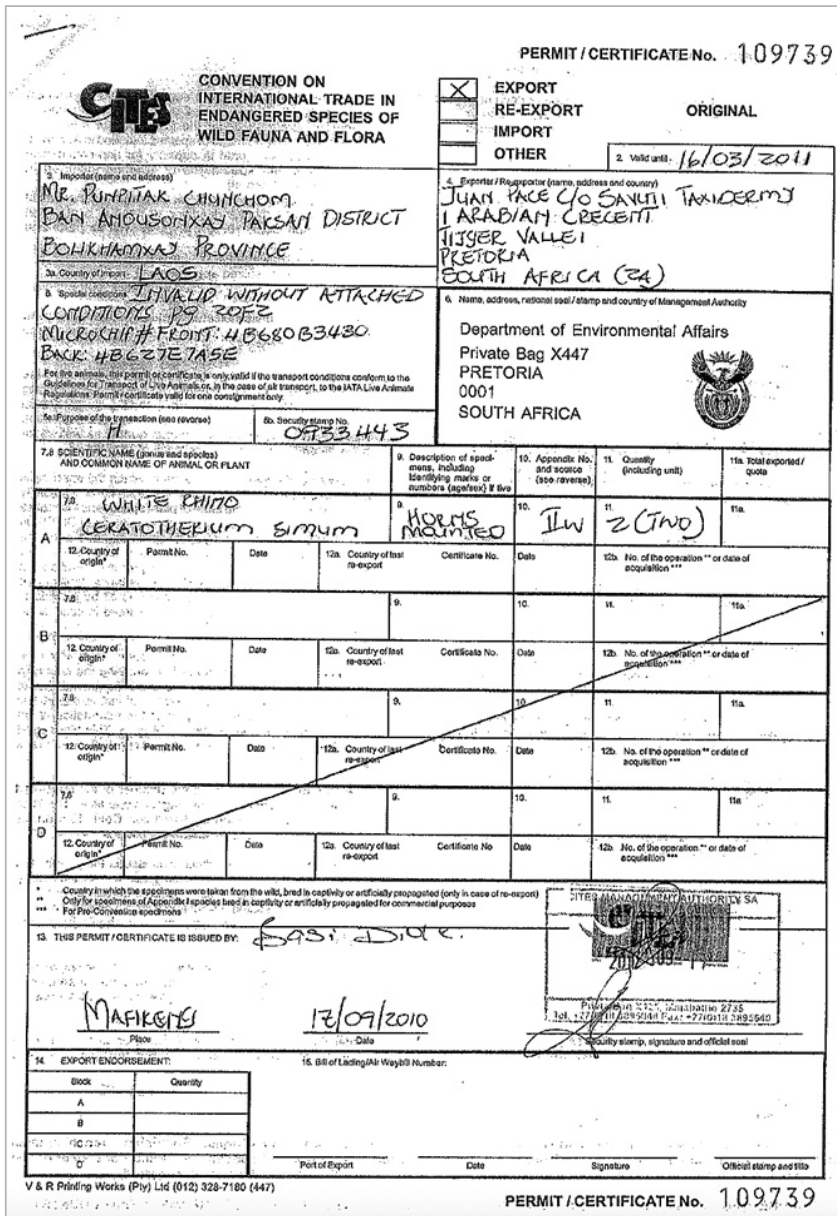 PERMIT / CERTIFICATE No. 109739
CITES
CONVENTION ON
INTERNATIONAL TRADE IN
ENDANGERED SPECIES OF
WILD FAUNA AND FLORA
X EXPORT
RE-EXPORT ORIGINAL
IMPORT
OTHER
2. Valid until 16/03/2011
3. Importer (name and address)
MR. PUNPITAK CHUNCHOM
BAN ANOUSONXAY PAKSAN DISTRICT
BOLIKHAMXAY PROVINCE
3a. Country of import LAOS
4. Exporter / Re-exporter (name, address and country)
JUAN PACE C/O SAVUTI TAXIDERMY
1 ARABIAN CRECENT
TIJGER VALLEI
PRETORIA
SOUTH AFRICA (ZA)
5. Special conditions INVALID WITHOUT ATTACHED
CONDITIONS PG 2OF2
MICROCHIP # FRONT: 4B680B3430
BACK: 4B627E7A5E
For live animals, this permit or certificate is only valid if the transport conditions conform to the
Guidelines for Transport of Live Animals or, in the case of air transport, to the IATA Live Animals
Regulations. Permit / certificate valid for one consignment only.
5a. Purpose of the transaction (see reverse)
H
5b. Security stamp No.
0933443
6. Name, address, national seal / stamp and country of Management Authority
Department of Environmental Affairs
Private Bag X447
PRETORIA
0001
SOUTH AFRICA
7.8 SCIENTIFIC NAME (genus and species)
AND COMMON NAME OF ANIMAL OR PLANT
9. Description of speci-
mens, including
identifying marks or
numbers (age/sex) if live
10. Appendix No.
and source
(see reverse)
11. Quantity
(including unit)
11a. Total exported /
quota
A
7.8 WHITE RHINO
CERATOTHERIUM SIMUM
9. HORNS
MOUNTED
10. IIW
11. 2 (TWO)
11a.
12. Country of
origin*
Permit No.
Date
12a. Country of last
re-export
Certificate No.
Date
12b. No. of the operation ** or date of
acquisition ***
B
7.8
9.
10.
11.
11a.
12. Country of
origin*
Permit No.
Date
12a. Country of last
re-export
Certificate No.
Date
12b. No. of the operation ** or date of
acquisition ***
C
7.8
9.
10.
11.
11a.
12. Country of
origin*
Permit No.
Date
12a. Country of last
re-export
Certificate No.
Date
12b. No. of the operation ** or date of
acquisition ***
D
7.8
9.
10.
11.
11a.
12. Country of
origin*
Permit No.
Date
12a. Country of last
re-export
Certificate No
Date
12b. No. of the operation ** or date of
acquisition ***
* Country in which the specimens were taken from the wild, bred in captivity or artificially propagated (only in case of re-export)
** Only for specimens of Appendix I species bred in captivity or artificially propagated for commercial purposes
*** For Pre-Convention specimens
CITES MANAGEMENT AUTHORITY SA
13. THIS PERMIT / CERTIFICATE IS ISSUED BY:
MAFIKENG
Place
17/09/2010
Date
Security stamp, signature and official seal
14. EXPORT ENDORSEMENT:
Block Quantity
A
B
C
D
15. Bill of Lading/Air Waybill Number:
Port of Export Date Signature Official stamp and title
V & R Printing Works (Pty) Ltd (012) 328-7180 (447)
PERMIT / CERTIFICATE No. 109739